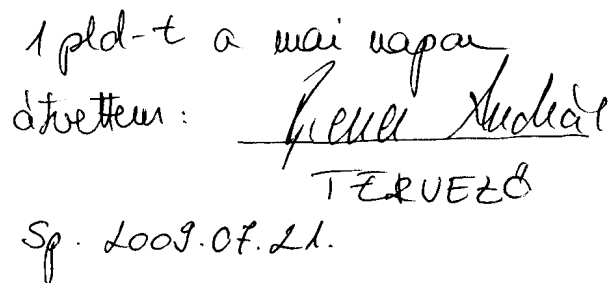 1 pld-t a mai napon
átvettem: András
TERVEZŐ
Sp. 2009.07.21.